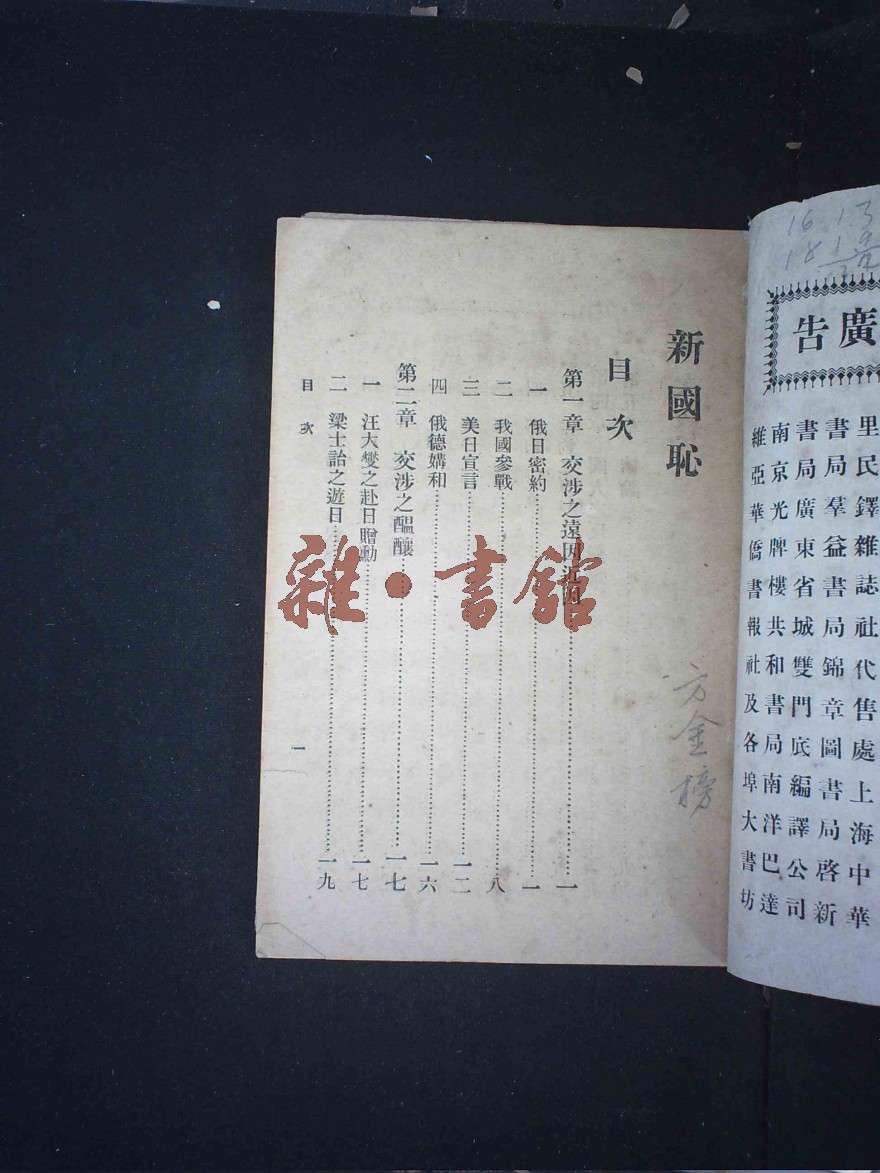 16 13
18 1
廣告
里民鐸雜誌社代售處上海中華
書局羣益書局錦章圖書局啓新
書局廣東省城雙門底編譯公司
南京光牌樓共和書局南洋巴達
維亞華僑書報社及各埠大書坊
新國恥
方金榜
目次
第一章 交涉之遠因近因……一
一 俄日密約……一
二 我國參戰……八
三 美日宣言……一二
四 俄德媾和……一六
第二章 交涉之醞釀……一七
一 汪大燮之赴日贈勳……一七
二 梁士詒之遊日……一九
目次
一
雜·書館